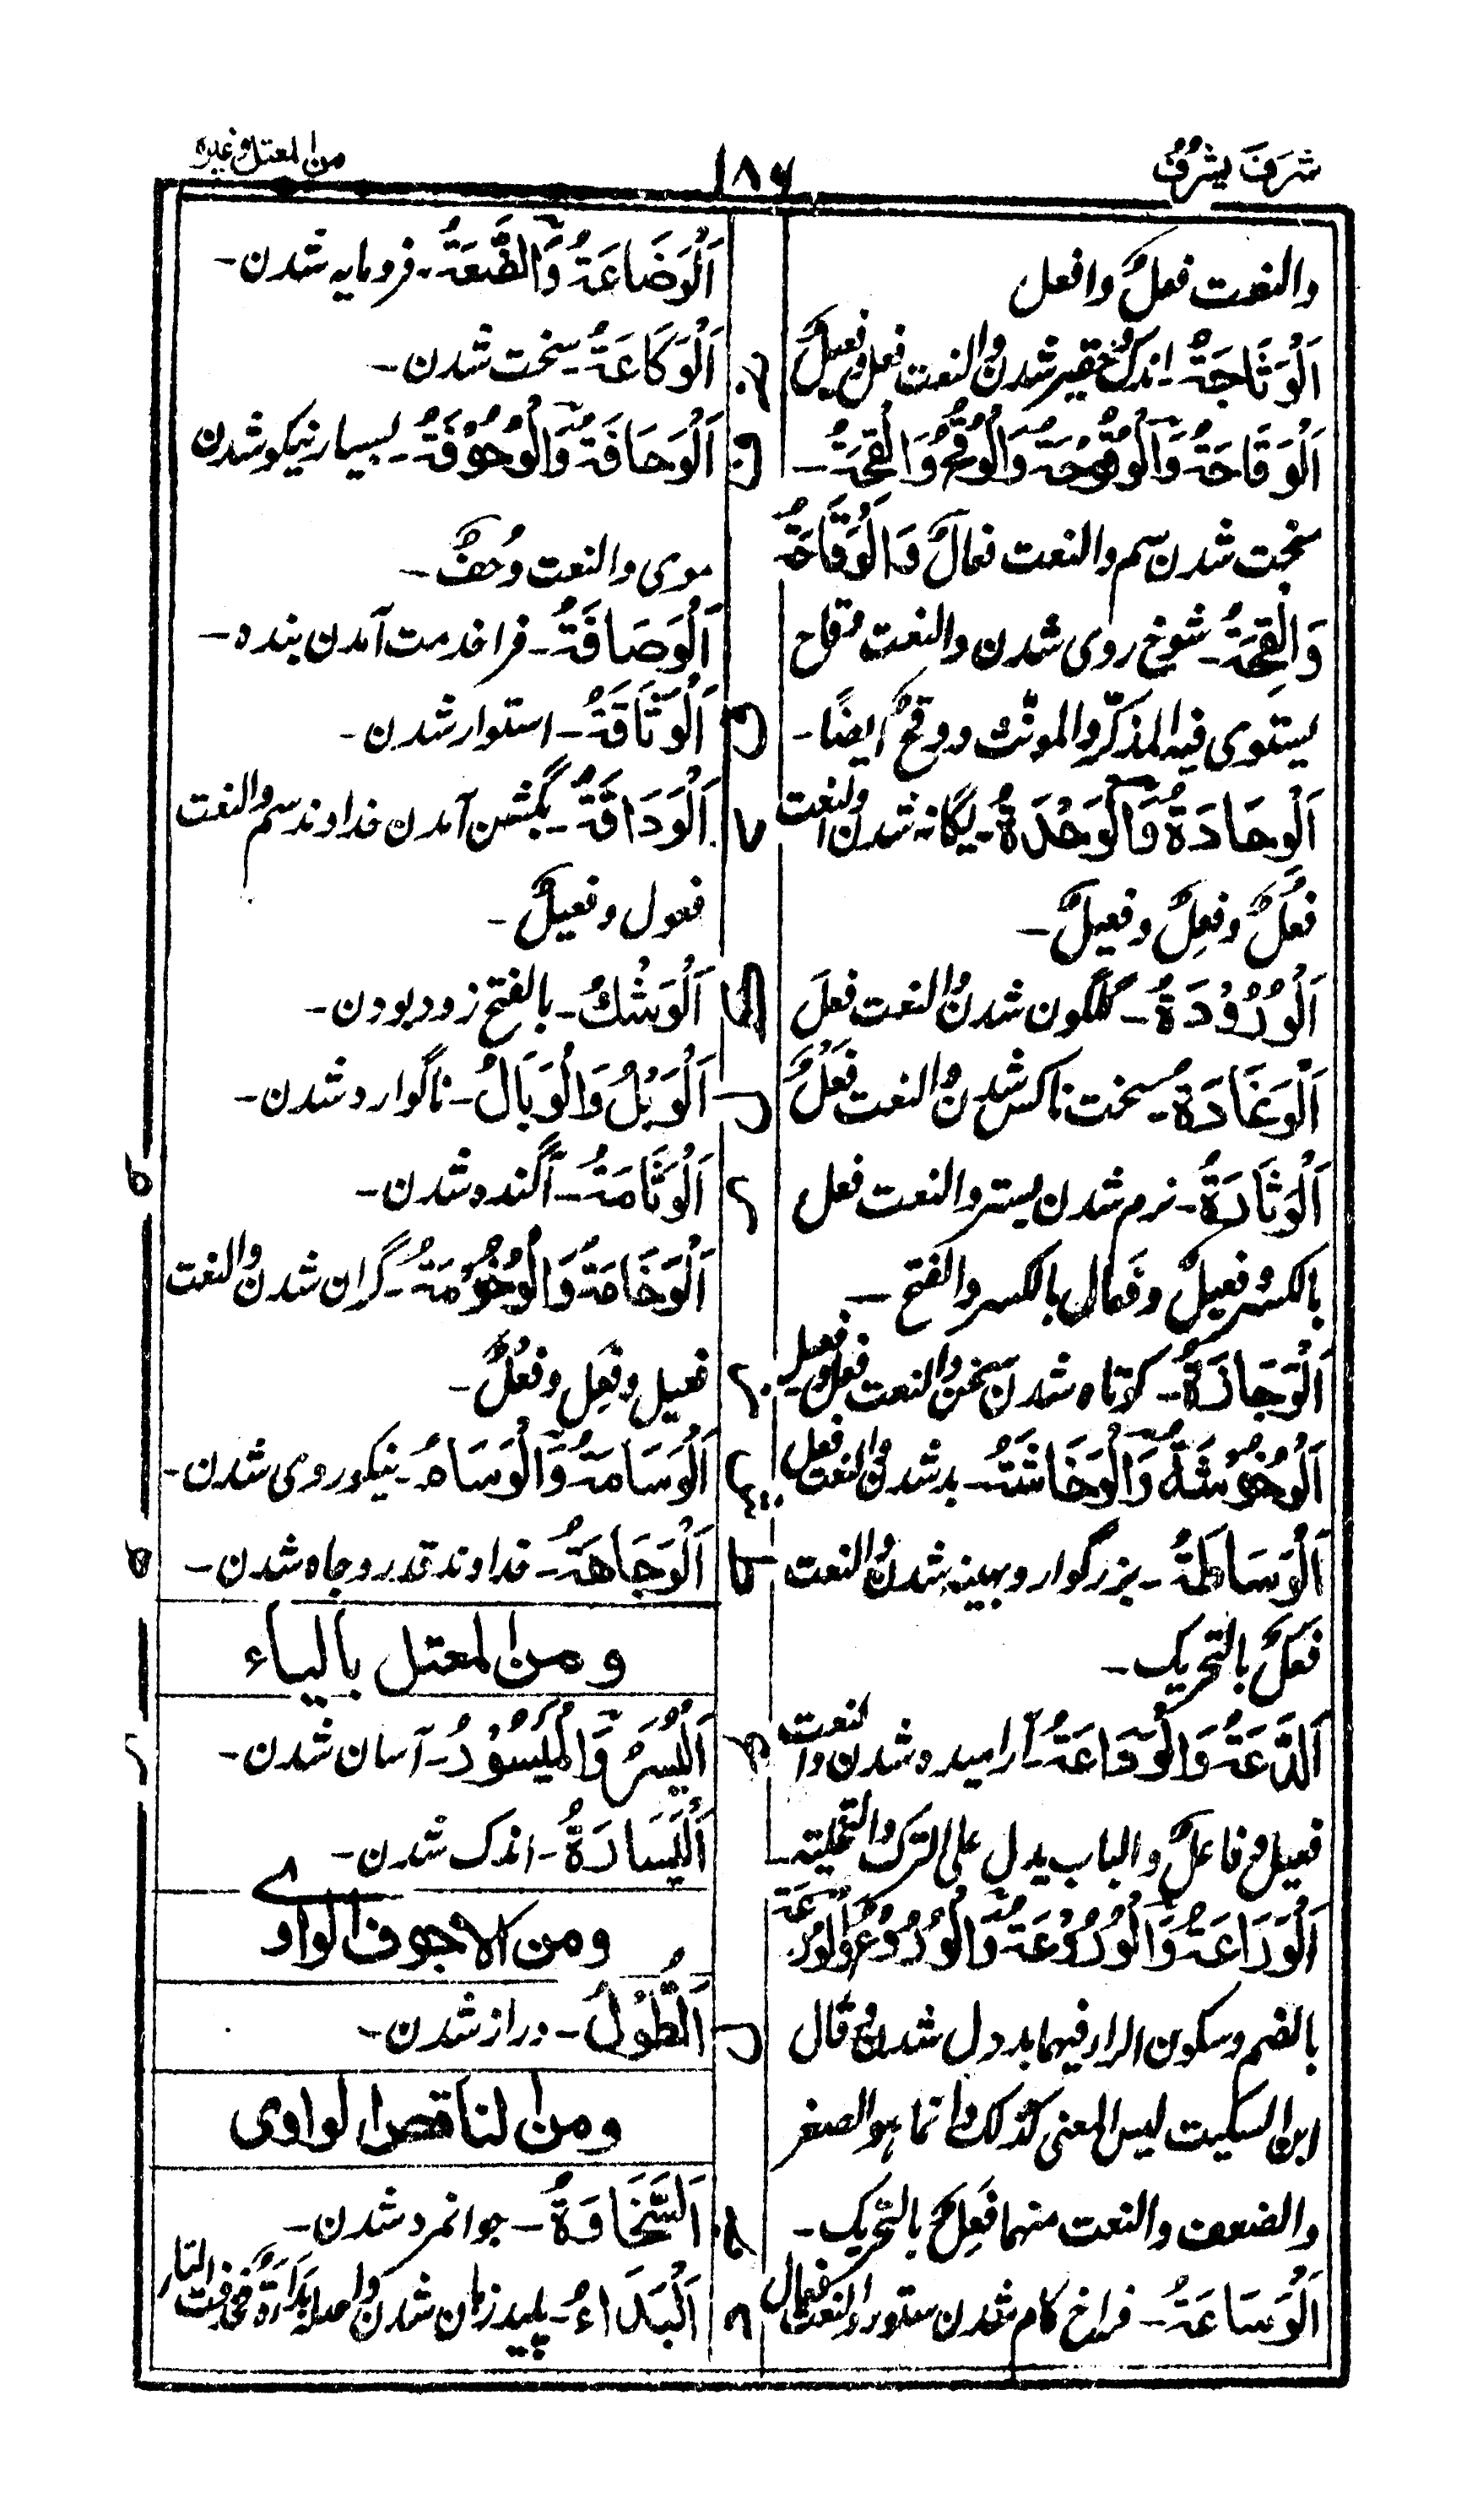 شَرُفَ يشرُفُ
۱۸۶
من المعتل وغيره
والنعت فعلٌ وافعل
اَلْوَتَاحَةُ - اندک وحقیر شدن والنعت فعل وفعیلٌ
اَلْوَقَاحَةُ وَالْوُقُوْحَةُ وَالْوُقُحُ وَالْقِحَةُ -
سخت شدن سم والنعت فعالٌ وَالْوَقَاحَةُ
وَالْقِحَةُ - شوخ روی شدن والنعت وقاح
یستوی فیه المذکّر والمونّث ووقحٌ ایضًا -
اَلْوَحَادَةُ وَالْوَحْدَةُ - یگانه شدن والنعت
فعُلٌ وفعِلٌ وفعیلٌ -
اَلْوُرُوْدَةُ - گلگون شدن والنعت فعلَ
اَلْوَغَادَةُ - سخت ناکس شدن والنعت فَعْلٌ
اَلْوَثَارَةُ - نرم شدن بستر والنعت فعل
بالکسر وفعیلٌ وفَعال بالکسر والفتح -
اَلْوَجَازَةُ - کوتاه شدن سخن والنعت فعل وفعیل
اَلْوُخُوْشَةُ وَالْوَخَاشَةُ - بد شدن والنعت فعل
اَلْوَسَاطَةُ - بزرگوار وبهینه شدن والنعت
فَعَلٌ بالتحریک -
اَلدَّعَةُ وَالْوَدَاعَةُ - آرامیده شدن والنعت
فعیل وفاعلٌ والباب یدل علی الترک والتخلیته -
اَلْوَرَاعَةُ وَالْوُرُوْعَةُ وَالْوُرُوْعُ وَالْوُرْعَةُ
بالضم وسکون الراء فیهما بددل شدن وقال
ابن السکیت لیس المعنی کذلک وانما هو الصغر
والضعف والنعت منهما فَعِلٌ بالتحریک -
اَلْوَسَاعَةُ - فراخ کام شدن ستور والنعت فعال
اَلْوَضَاعَةُ وَالضَّعَةُ - فرومایه شدن -
اَلْوَكَاعَةُ - سخت شدن -
اَلْوَحَافَةُ وَالْوُحُوْفَةُ - بسیار نیکو شدن
موی والنعت وحفٌ -
اَلْوَصَافَةُ - فرا خدمت آمدن بنده -
اَلْوَثَاقَةُ - استوار شدن -
اَلْوَدَاقَةُ - بگشن آمدن خداوند سم والنعت
فعول وفعیلٌ -
اَلْوَشْكُ - بالفتح زود بودن -
اَلْوَبْلُ وَالْوَبَالُ - ناگوارد شدن -
اَلْوَثَامَةُ - آگنده شدن -
اَلْوَخَامَةُ وَالْوُخُوْمَةُ - گران شدن والنعت
فعیل وفَعِل وفعْلٌ -
اَلْوَسَامَةُ وَالْوَسَامُ - نیکو روی شدن -
اَلْوَجَاهَةُ - خداوند قدر وجاه شدن -
ومن المعتل بالیاء
اَلْیُسْرُ وَالْمَیْسُوْرُ - آسان شدن -
اَلْیَسَارَةُ - اندک شدن -
ومن الاجوف الواوے
اَلطُّوْلُ - دراز شدن -
ومن الناقص الواوی
اَلسَّخَاوَةُ - جوانمرد شدن -
اَلْبَذَاءُ - پلید زبان شدن واصله بَذَاءَةٌ فحذفت التاء